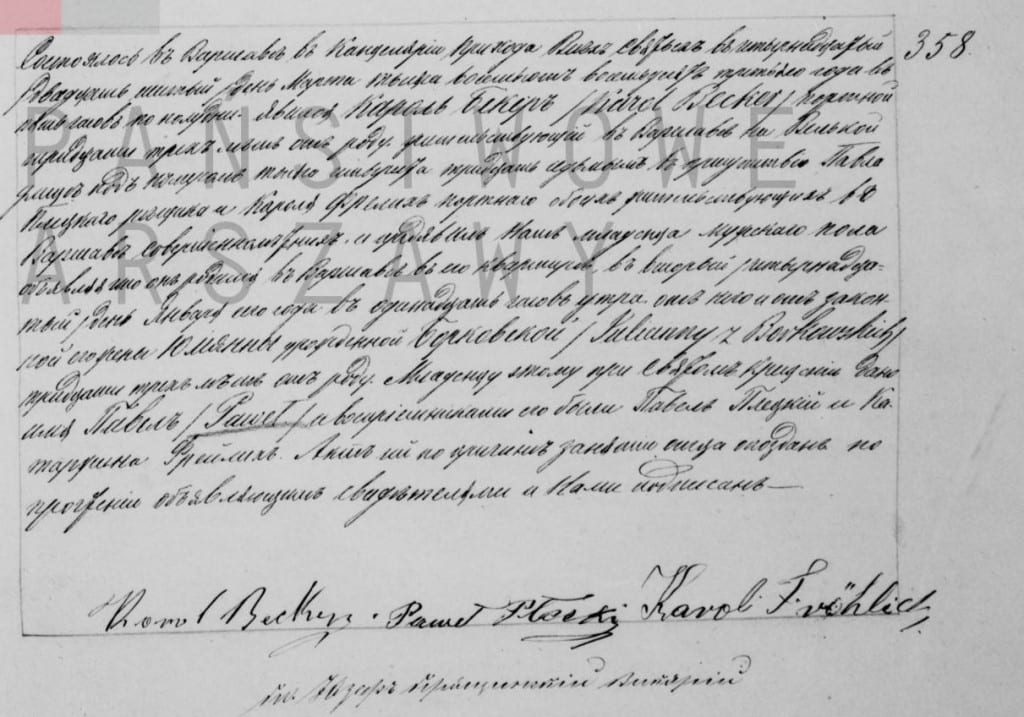 358.
Состоялось въ Варшавѣ въ Канцеляріи прихода Всѣхъ Святыхъ въ четырнадцатый
/двадцать шестый/ день Марта тысяча восемьсотъ восемьдесятъ третьяго года въ
часовъ по полудни. Явился Кароль Бекеръ /Karol Becker/ портной
тридцати трехъ лѣтъ отъ роду, жительствующій въ Варшавѣ на Вильной
улицѣ подъ номеромъ тридцать седьмымъ въ присутствіи Павла
Плецкаго и Кароля Фрелихъ портнаго обоихъ жительствующихъ въ
Варшавѣ совершеннолѣтнихъ и предъявилъ Намъ младенца мужскаго пола
объявляя что онъ родился въ Варшавѣ въ его квартирѣ, въ вторый /четырнадца-
тый/ день Января сего года въ одинадцать часовъ утра отъ него и отъ закон-
ной его жены Юліянны урожденной Борковской /Julianny z Borkowskich/
тридцати трехъ лѣтъ отъ роду. Младенцу этому при Святомъ крещеніи дано
имя Павелъ /Paweł/ а воспріемниками его были Павелъ Плецкій и Ка-
таржина Фрейлихъ. Актъ сей по причинѣ занятій отца опозданъ по
прочтеніи объявляющимъ свидѣтелями и Нами подписанъ —
Karol Becker. Paweł Płecki Karol Fröhlich
PAŃSTWOWE
WARSZAWY